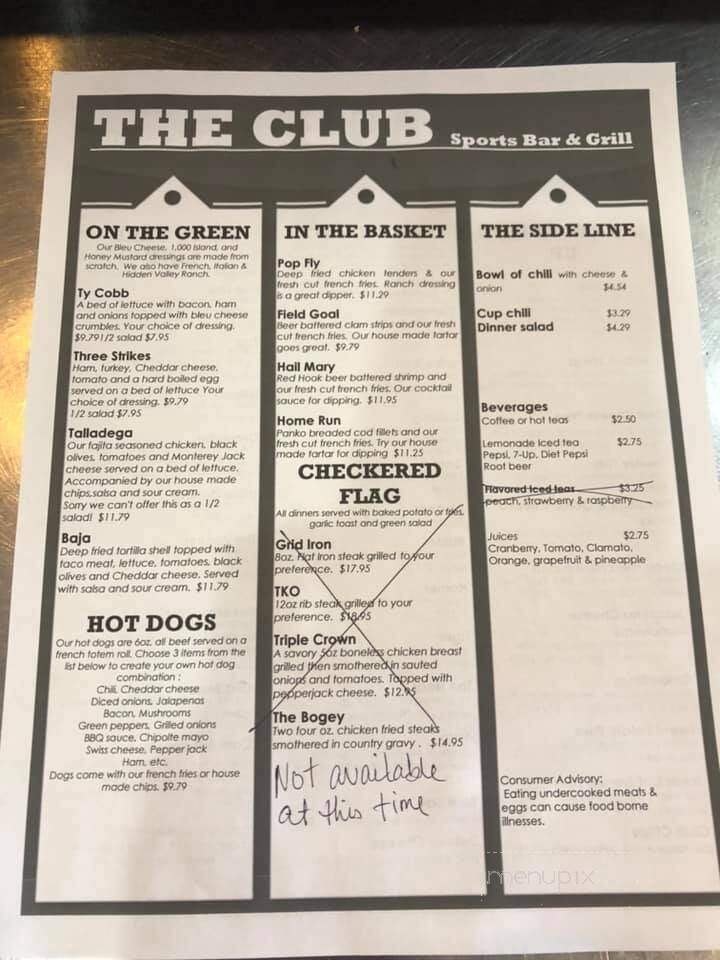 THE CLUB Sports Bar & Grill
ON THE GREEN
Our Bleu Cheese, 1,000 Island, and
Honey Mustard dressings are made from
scratch. We also have French, Italian &
Hidden Valley Ranch.
Ty Cobb
A bed of lettuce with bacon, ham
and onions topped with bleu cheese
crumbles. Your choice of dressing.
$9.791/2 salad $7.95
Three Strikes
Ham, turkey, Cheddar cheese,
tomato and a hard boiled egg
served on a bed of lettuce Your
choice of dressing. $9.79
1/2 salad $7.95
Talladega
Our fajita seasoned chicken, black
olives, tomatoes and Monterey Jack
cheese served on a bed of lettuce.
Accompanied by our house made
chips,salsa and sour cream.
Sorry we can't offer this as a 1/2
salad! $11.79
Baja
Deep fried tortilla shell topped with
taco meat, lettuce, tomatoes, black
olives and Cheddar cheese. Served
with salsa and sour cream. $11.79
HOT DOGS
Our hot dogs are 6oz. all beef served on a
french totem roll. Choose 3 items from the
list below to create your own hot dog
combination :
Chili, Cheddar cheese
Diced onions, Jalapenos
Bacon, Mushrooms
Green peppers, Grilled onions
BBQ sauce, Chipolte mayo
Swiss cheese, Pepper jack
Ham, etc.
Dogs come with our french fries or house
made chips. $9.79
IN THE BASKET
Pop Fly
Deep fried chicken tenders & our
fresh cut french fries. Ranch dressing
is a great dipper. $11.29
Field Goal
Beer battered clam strips and our fresh
cut french fries. Our house made tartar
goes great. $9.79
Hail Mary
Red Hook beer battered shrimp and
our fresh cut french fries. Our cocktail
sauce for dipping. $11.95
Home Run
Panko breaded cod fillets and our
fresh cut french fries. Try our house
made tartar for dipping $11.25
CHECKERED
FLAG
All dinners served with baked potato or fries,
garlic toast and green salad
Grid Iron
8oz. flat iron steak grilled to your
preference. $17.95
TKO
12oz rib steak grilled to your
preference. $18.95
Triple Crown
A savory 5oz boneless chicken breast
grilled then smothered in sauted
onions and tomatoes. Topped with
pepperjack cheese. $12.95
The Bogey
Two four oz. chicken fried steaks
smothered in country gravy . $14.95
Not available
at this time
THE SIDE LINE
Bowl of chili with cheese &
onion $4.54
Cup chili $3.29
Dinner salad $4.29
Beverages
Coffee or hot teas $2.50
Lemonade Iced tea $2.75
Pepsi, 7-Up, Diet Pepsi
Root beer
Flavored Iced teas $3.25
peach, strawberry & raspberry
Juices $2.75
Cranberry, Tomato, Clamato,
Orange, grapefruit & pineapple
Consumer Advisory:
Eating undercooked meats &
eggs can cause food borne
illnesses.
menupix